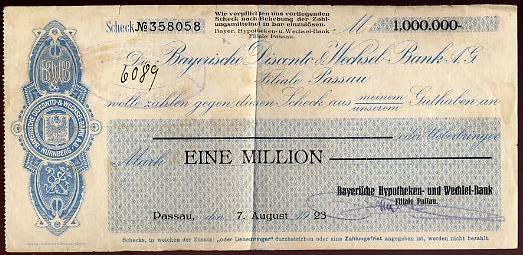 Wir verpflichten uns vorliegenden
Scheck nach Behebung der Zahl-
ungsmittelnot in bar einzulösen.
Bayer. Hypotheken- u. Wechsel-Bank
Filiale Passau
Scheck № 358058
M 1.000.000.-
6089
Die Bayerische Disconto & Wechsel-Bank A.G.
Filiale Passau
wolle zahlen gegen diesen Scheck aus meinem Guthaben an
unserem
oder Ueberbringer
Mark EINE MILLION
Bayerische Hypotheken- und Wechsel-Bank
Filiale Passau.
Passau, den 7. August 1923
BAYERISCHE DISCONTO- & WECHSEL-BANK A.G.
NÜRNBERG
Schecks, in welchen der Zusatz: „oder Ueberbringer" durchstrichen oder eine Zahlungsfrist angegeben ist, werden nicht bezahlt.